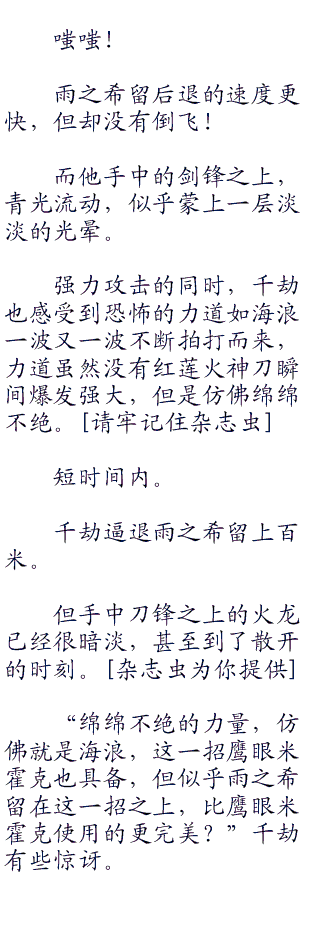 嗤嗤！
雨之希留后退的速度更
快，但却没有倒飞！
而他手中的剑锋之上，
青光流动，似乎蒙上一层淡
淡的光晕。
强力攻击的同时，千劫
也感受到恐怖的力道如海浪
一波又一波不断拍打而来，
力道虽然没有红莲火神刀瞬
间爆发强大，但是仿佛绵绵
不绝。[请牢记住杂志虫]
短时间内。
千劫逼退雨之希留上百
米。
但手中刀锋之上的火龙
已经很暗淡，甚至到了散开
的时刻。[杂志虫为你提供]
“绵绵不绝的力量，仿
佛就是海浪，这一招鹰眼米
霍克也具备，但似乎雨之希
留在这一招之上，比鹰眼米
霍克使用的更完美？”千劫
有些惊讶。